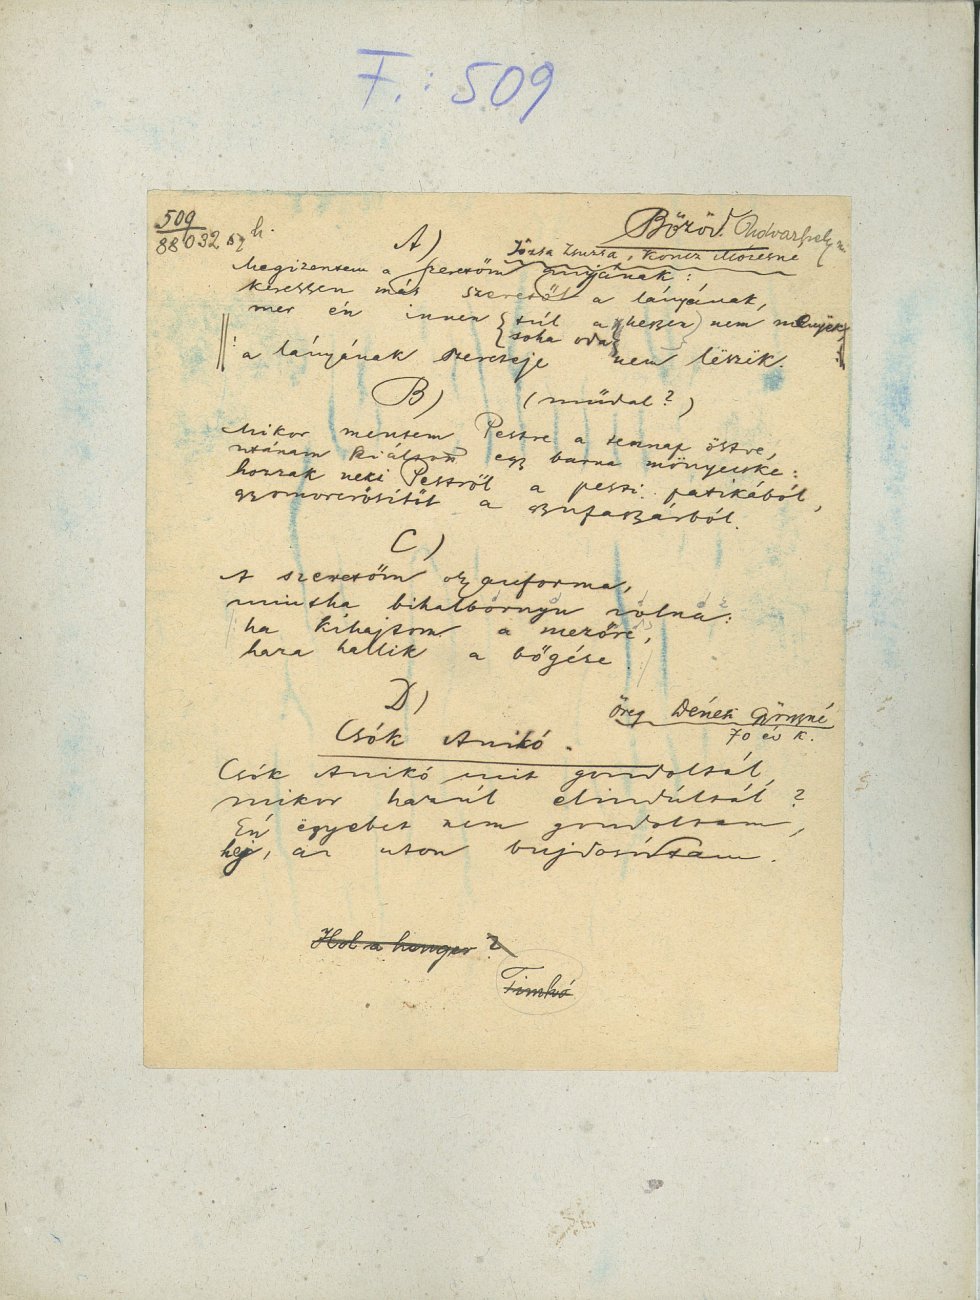 F.: 509
509
88032 h.
Bözöd Udvarhely m
A) Józsa Zsuzsa, Koncz Mózesné
Megizentem a szeretőm annyának:
keressen más szeretőt a lányának,
mer én innen { túl a (heszen) nem menyëk,
soha oda
a lányának szereteje nem lëszëk.
B) (műdal?)
Mikor mentem Pestre a tennap östve,
utánam kiáltott egy barna mönyecske:
hozzak neki Pestről a pesti patikából,
gyomorerősitőt a
C)
A szeretőm ojanforma,
mintha bihalbornyu volna:
ha kihajtom a mezőre,
haza hallik a bőgése
D)
Öreg Dénes Györgyné
70 év k.
Csók Anikó.
Csók Anikó mit gondoltál,
mikor hazúl elindúltál?
Én ëgyebet nem gondoltam,
hej, az uton bujdosútam.
Hol a henger?
Timkó